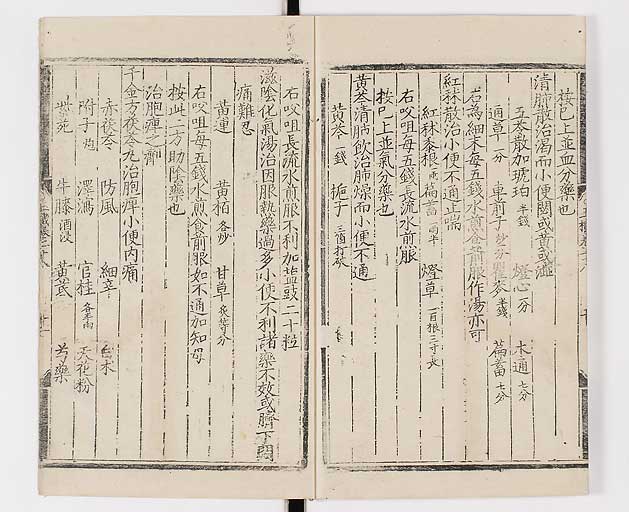 按已上並血分藥也
清肺散治渴而小便閟或黄或澁
五苓散加琥珀半錢 燈心一分 木通七分
通草一分 車前子炒一分 瞿麥半錢 萹蓄七分
右為細末每五錢水煎食前服作湯亦可
紅秫散治小便不通上喘
紅秫黍根 萹蓄一兩半 燈草一百根三寸長
右㕮咀每五錢長流水煎服
按已上並氣分藥也
黄芩清肺飲治肺燥而小便不通
黄芩一錢 梔子三箇打破
右㕮咀長流水煎服不利加盐豉二十粒
滋陰化氣湯治因服熱藥過多小便不利諸藥不效或臍下悶
痛難忍
黄連 黄栢各炒 甘草炙等分
右㕮咀每五錢水煎食前服如不通加知母
按此二方助陰藥也
治胞痺之劑
千金方茯苓丸治胞痺小便内痛
赤茯苓 防風 細辛 白木
附子炮 澤瀉 官桂各半兩 天花粉
紫菀 牛膝酒浸 黄芪 芍藥